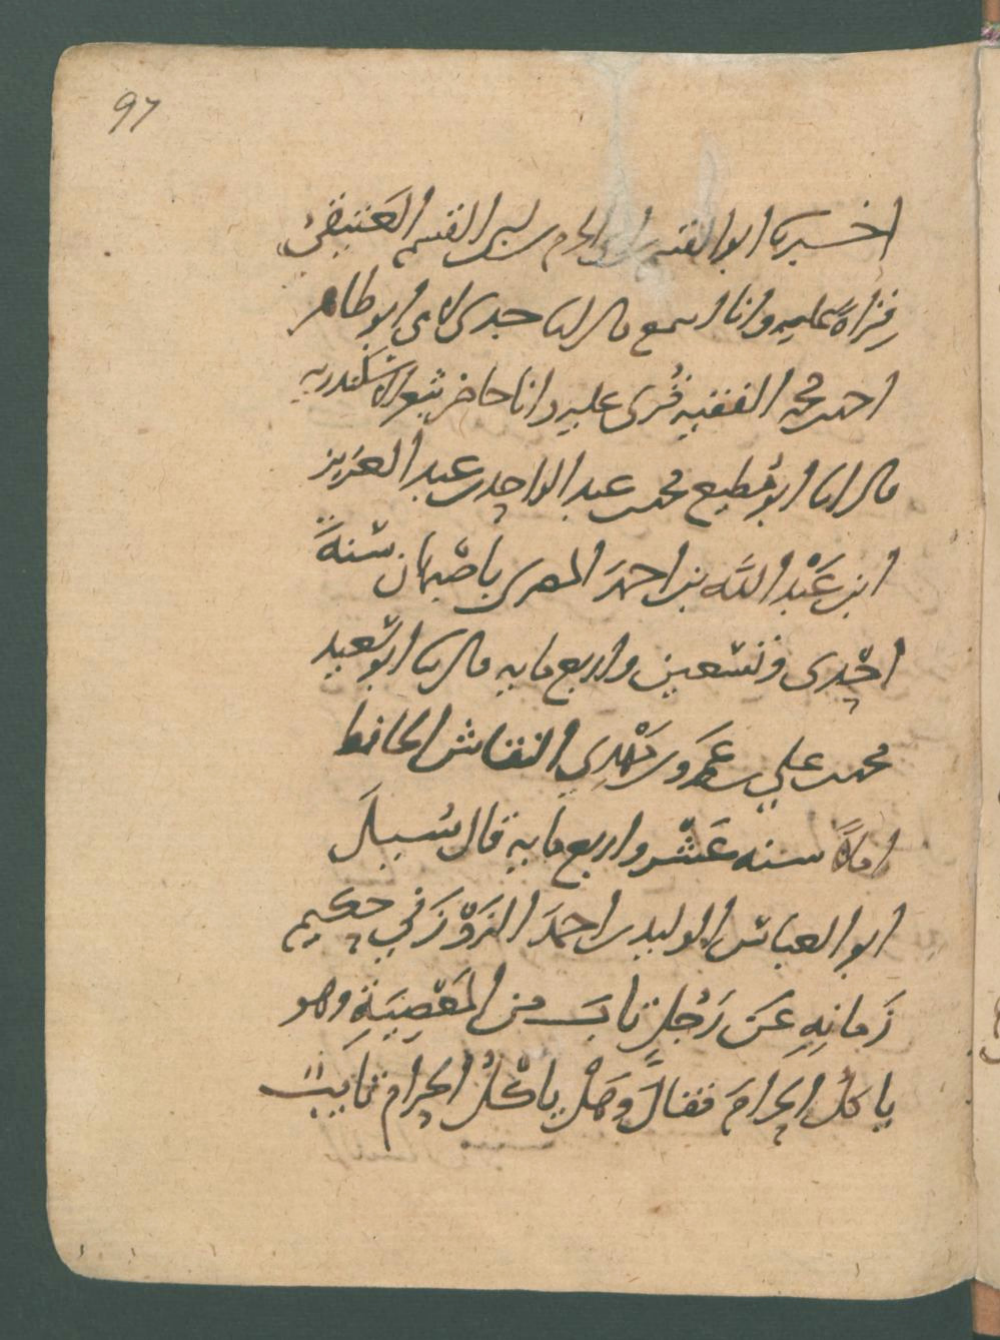 97
اخبرنا ابو القسم بن ابي الحرم بن ابي القسم العتيقي
قراة عليه وانا اسمع قال انا جدي لامي ابو طاهر
احمد بن محمد الفقيه قُرى عليه وانا حاضر بثغر الاسكندريه
قال انا ابو مُطيع محمد بن عبد الواحد بن عبد العزيز
ابن عَبْد الله بن احمدَ المصرى باصْبهان سَنةَ
احدى وتسعين واربع مايه قال نا ابو سَعيد
محمد بن علي بن عَمرو بن مَهْدي النقاش الحافظ
املاً سنه عَشْر واربع مايه قال سُيلَ
ابو العباس الوليد بن احمدَ الزَوْزَني حكيم
زَمانِهِ عَن رَجُلٍ تابَ من المَعْصِيَةِ وهو
ياكل الحرامَ فقالَ وَهَلْ ياكلُ الحرام تايب